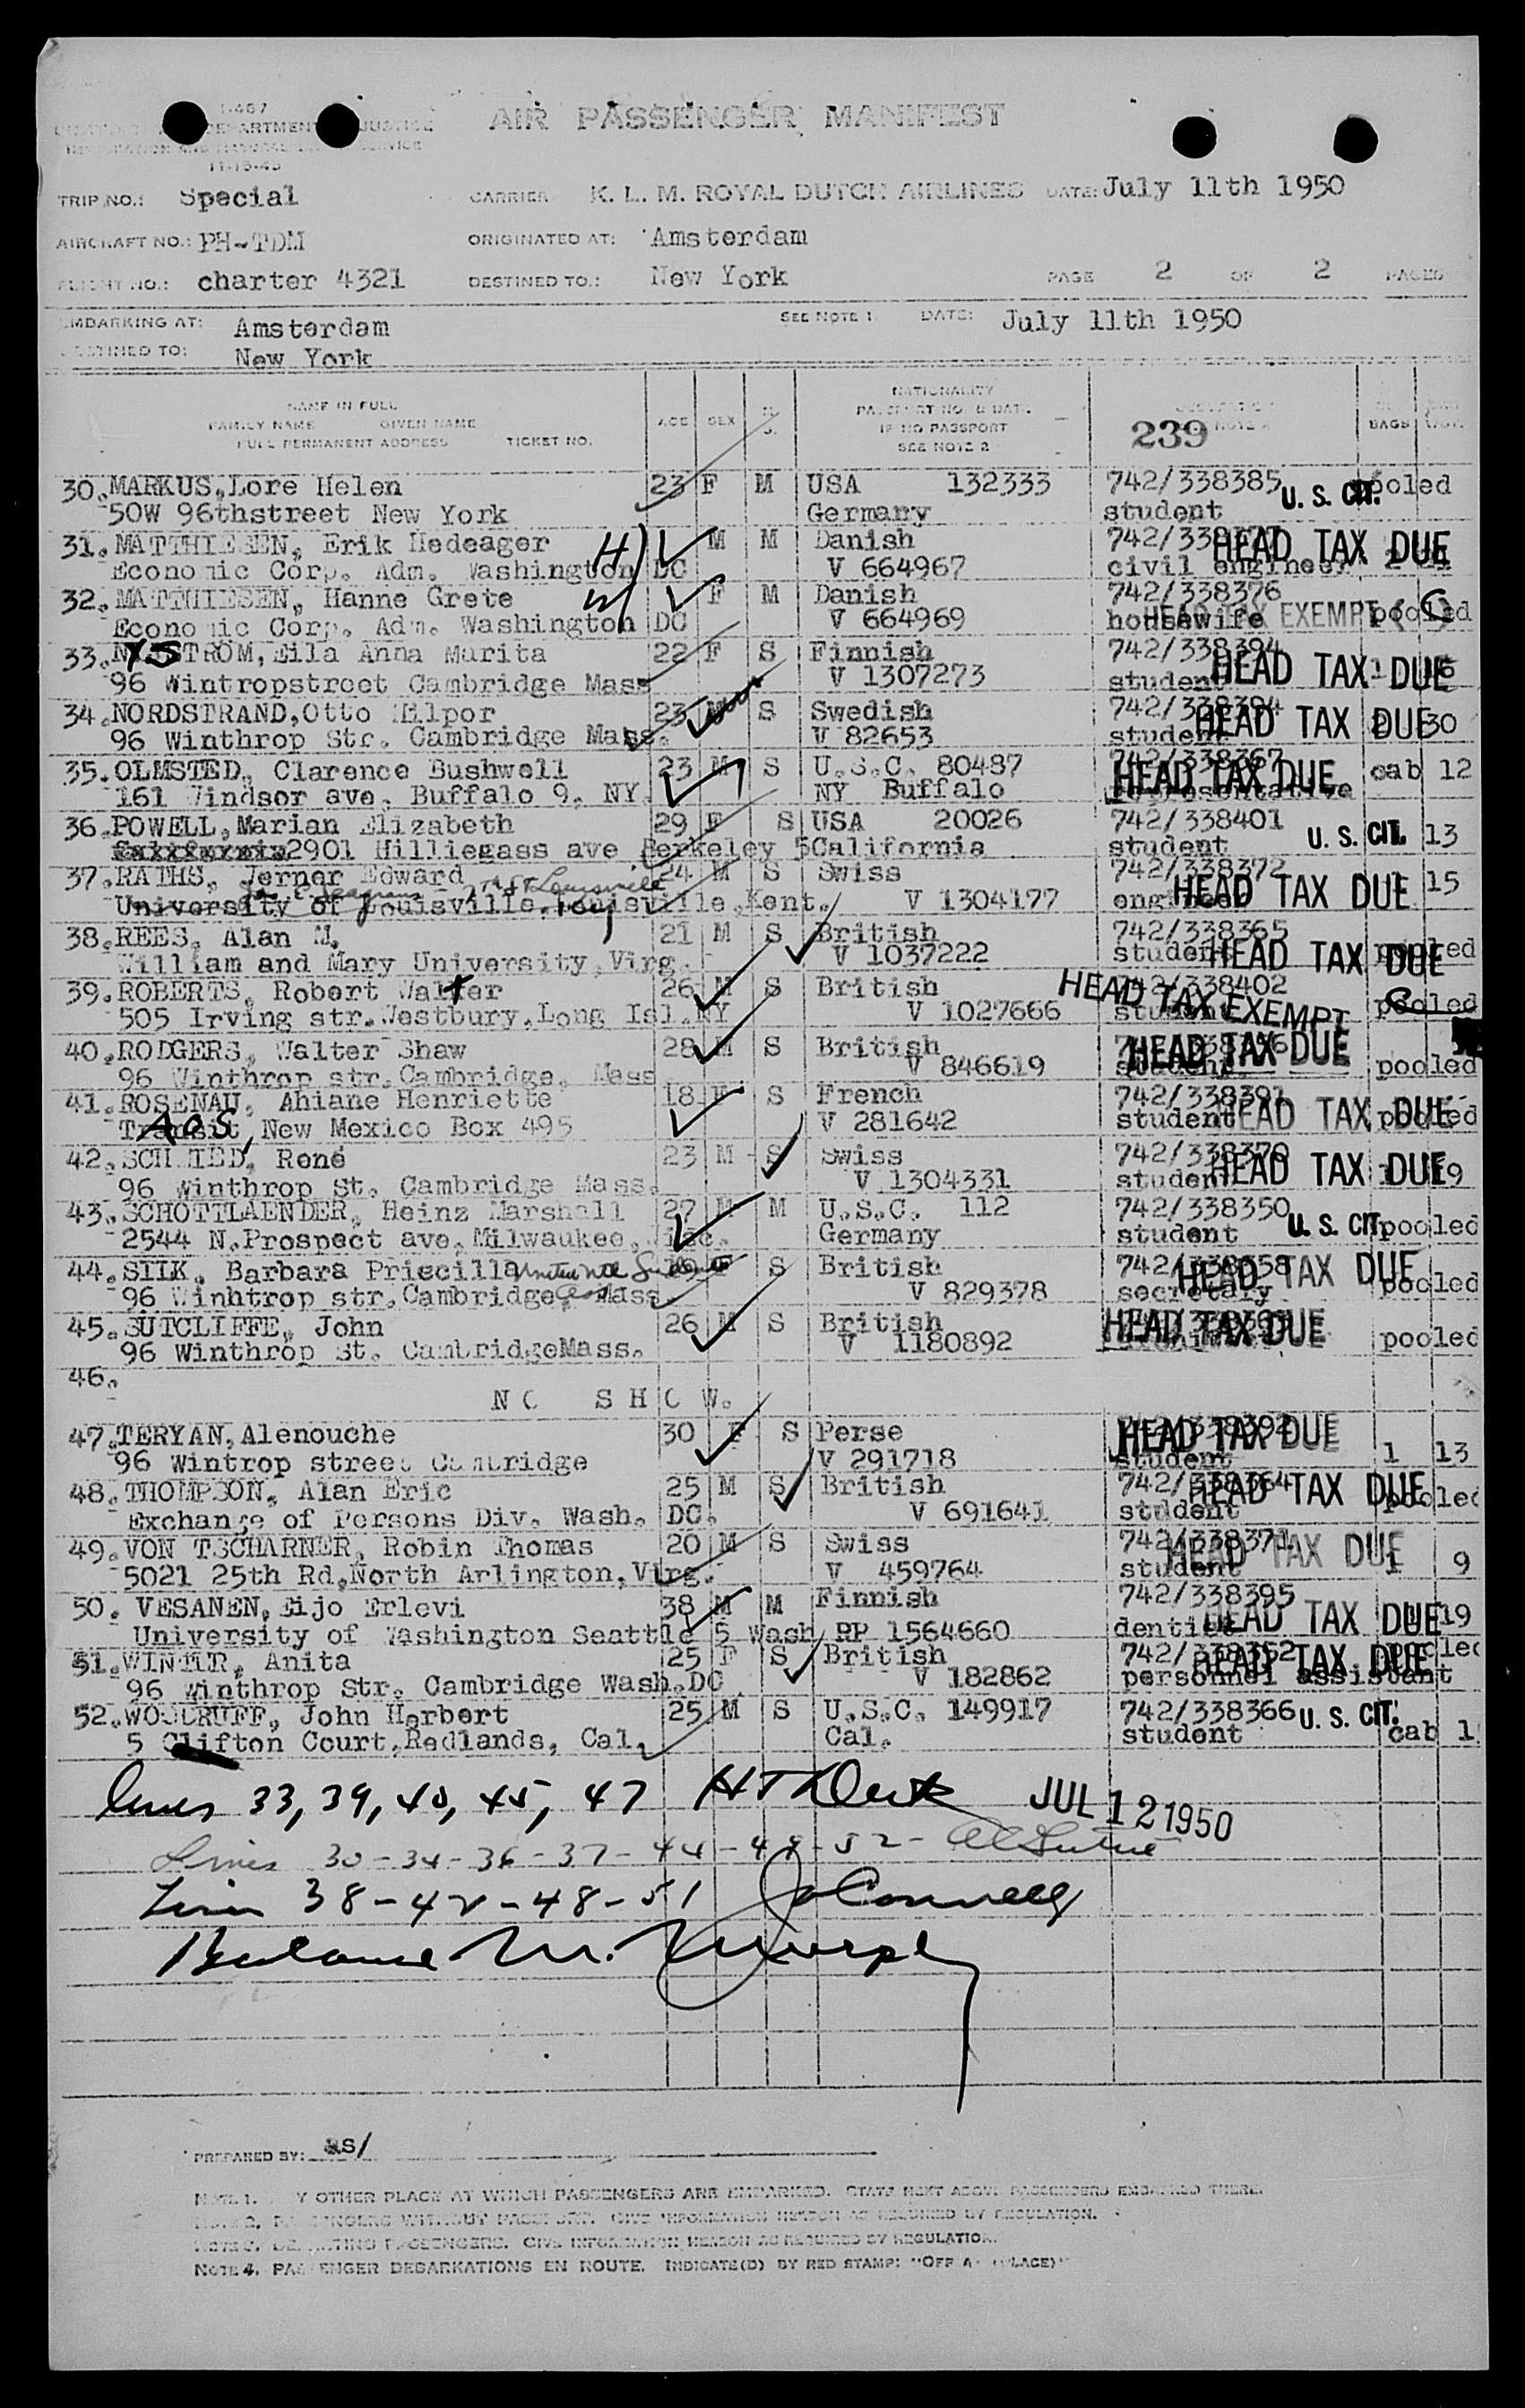 I-487
DEPARTMENT JUSTICE
11-15-45
AIR PASSENGER MANIFEST
TRIP NO.: Special CARRIER K. L. M. ROYAL DUTCH AIRLINES DATE: July 11th 1950
AIRCRAFT NO.: PH-TDM ORIGINATED AT: Amsterdam
FLIGHT NO.: charter 4321 DESTINED TO.: New York PAGE 2 OF 2 PAGES
EMBARKING AT: Amsterdam SEE NOTE 1. DATE: July 11th 1950
DESTINED TO: New York
NAME IN FULL
FAMILY NAME GIVEN NAME
FULL PERMANENT ADDRESS TICKET NO.
AGE SEX M. S.
NATIONALITY
PASSPORT NO. & DATE
IF NO PASSPORT
SEE NOTE 2
239
BAGS
30. MARKUS, Lore Helen 23 F M USA 132333 742/338385 U. S. CIT. pooled
50W 96thstreet New York Germany student
31. MATTHIESEN, Erik Hedeager H) M M Danish HEAD TAX DUE
Economic Corp. Adm. Washington DC V 664967 civil engineer
32. MATTHIESEN, Hanne Grete W) F M Danish 742/338376
Economic Corp. Adm. Washington DC V 664969 housewife HEAD TAX EXEMPT pooled
33. NYSTROM, Eila Anna Marita 22 F S Finnish 742/338394
96 Wintropstreet Cambridge Mass V 1307273 student HEAD TAX DUE
34. NORDSTRAND, Otto 23 M S Swedish
96 Winthrop Str. Cambridge Mass. V 82653 student HEAD TAX DUE 30
35. OLMSTED, Clarence Bushwell 23 M S U.S.C. 80487 742/338367 cab 12
161 Windsor ave. Buffalo 9. NY. NY Buffalo HEAD TAX DUE
36. POWELL, Marian Elizabeth 29 F S USA 20026 742/338401
2901 Hilliegass ave Berkeley 5 California student U. S. CIT. 13
37. RATHS, Werner Edward 24 M S Swiss 742/338372
University of Louisville. Louisville, Kent. V 1304177 engineer HEAD TAX DUE 1 15
38. REES, Alan M. 21 M S British 742/338365
William and Mary University, Virg. V 1037222 student HEAD TAX DUE pooled
39. ROBERTS, Robert Walter 26 M S British 742/338402
505 Irving str. Westbury, Long Isl. NY V 1027666 student HEAD TAX EXEMPT pooled
40. RODGERS, Walter Shaw 28 M S British HEAD TAX DUE
96 Winthrop str. Cambridge, Mass V 846619 pooled
41. ROSENAU, Ahiane Henriette 18 F S French 742/338391
New Mexico Box 495 V 281642 student HEAD TAX DUE pooled
42. SCHMIED, René 23 M S Swiss 742/338370
96 Winthrop St. Cambridge Mass. V 1304331 student HEAD TAX DUE
43. SCHOTTLAENDER, Heinz Marshall 27 M M U.S.C. 112 742/338350
2544 N. Prospect ave, Milwaukee, Germany student U. S. CIT. pooled
44. SILK, Barbara Priscilla F S British
96 Winhtrop str. Cambridge, Mass. V 829378 secretary HEAD TAX DUE pooled
45. SUTCLIFFE, John 26 M S British HEAD TAX DUE
96 Winthrop St. CambridgeMass. V 1180892 pooled
46.
NO SHOW.
47. TERYAN, Alenouche 30 F S Perse HEAD TAX DUE
96 Wintrop street Cambridge V 291718 student 1 13
48. THOMPSON, Alan Eric 25 M S British 742/338364
Exchange of Persons Div. Wash. DC. V 691641 student HEAD TAX DUE pooled
49. VON TSCHARNER, Robin Thomas 20 M S Swiss 742/338371
5021 25th Rd, North Arlington, Virg. V 459764 student HEAD TAX DUE 1 9
50. VESANEN, Eijo Erlevi 38 M M Finnish 742/338395
University of Washington Seattle 5 Wash RP 1564660 HEAD TAX DUE 19
51. WINTER, Anita 25 F S British 742/338352 pooled
96 Winthrop Str. Cambridge Wash. DC V 182862 personnel assistant HEAD TAX DUE
52. WOODRUFF, John Herbert 25 M S U.S.C. 149917 742/338366 U. S. CIT.
5 Clifton Court, Redlands, Cal. Cal. student cab 1
lines 33, 39, 40, 45, 47
JUL 12 1950
Lines 30-34-36-37-44-49-52-
Lines 38-42-48-51 JoConnell
Balance M. Murphy
PREPARED BY: as/
NOTE 1. OTHER PLACE AT WHICH PASSENGERS ARE EMBARKED. STATE NEXT ABOVE PASSENGERS EMBARKED THERE.
PASSENGERS WITHOUT PASSPORT. GIVE INFORMATION HEREON AS REQUIRED BY REGULATION.
PASSENGERS. GIVE INFORMATION HEREON AS REQUIRED BY REGULATION.
NOTE 4. PASSENGER DEBARKATIONS EN ROUTE. INDICATE(D) BY RED STAMP: "OFF AT (PLACE)"